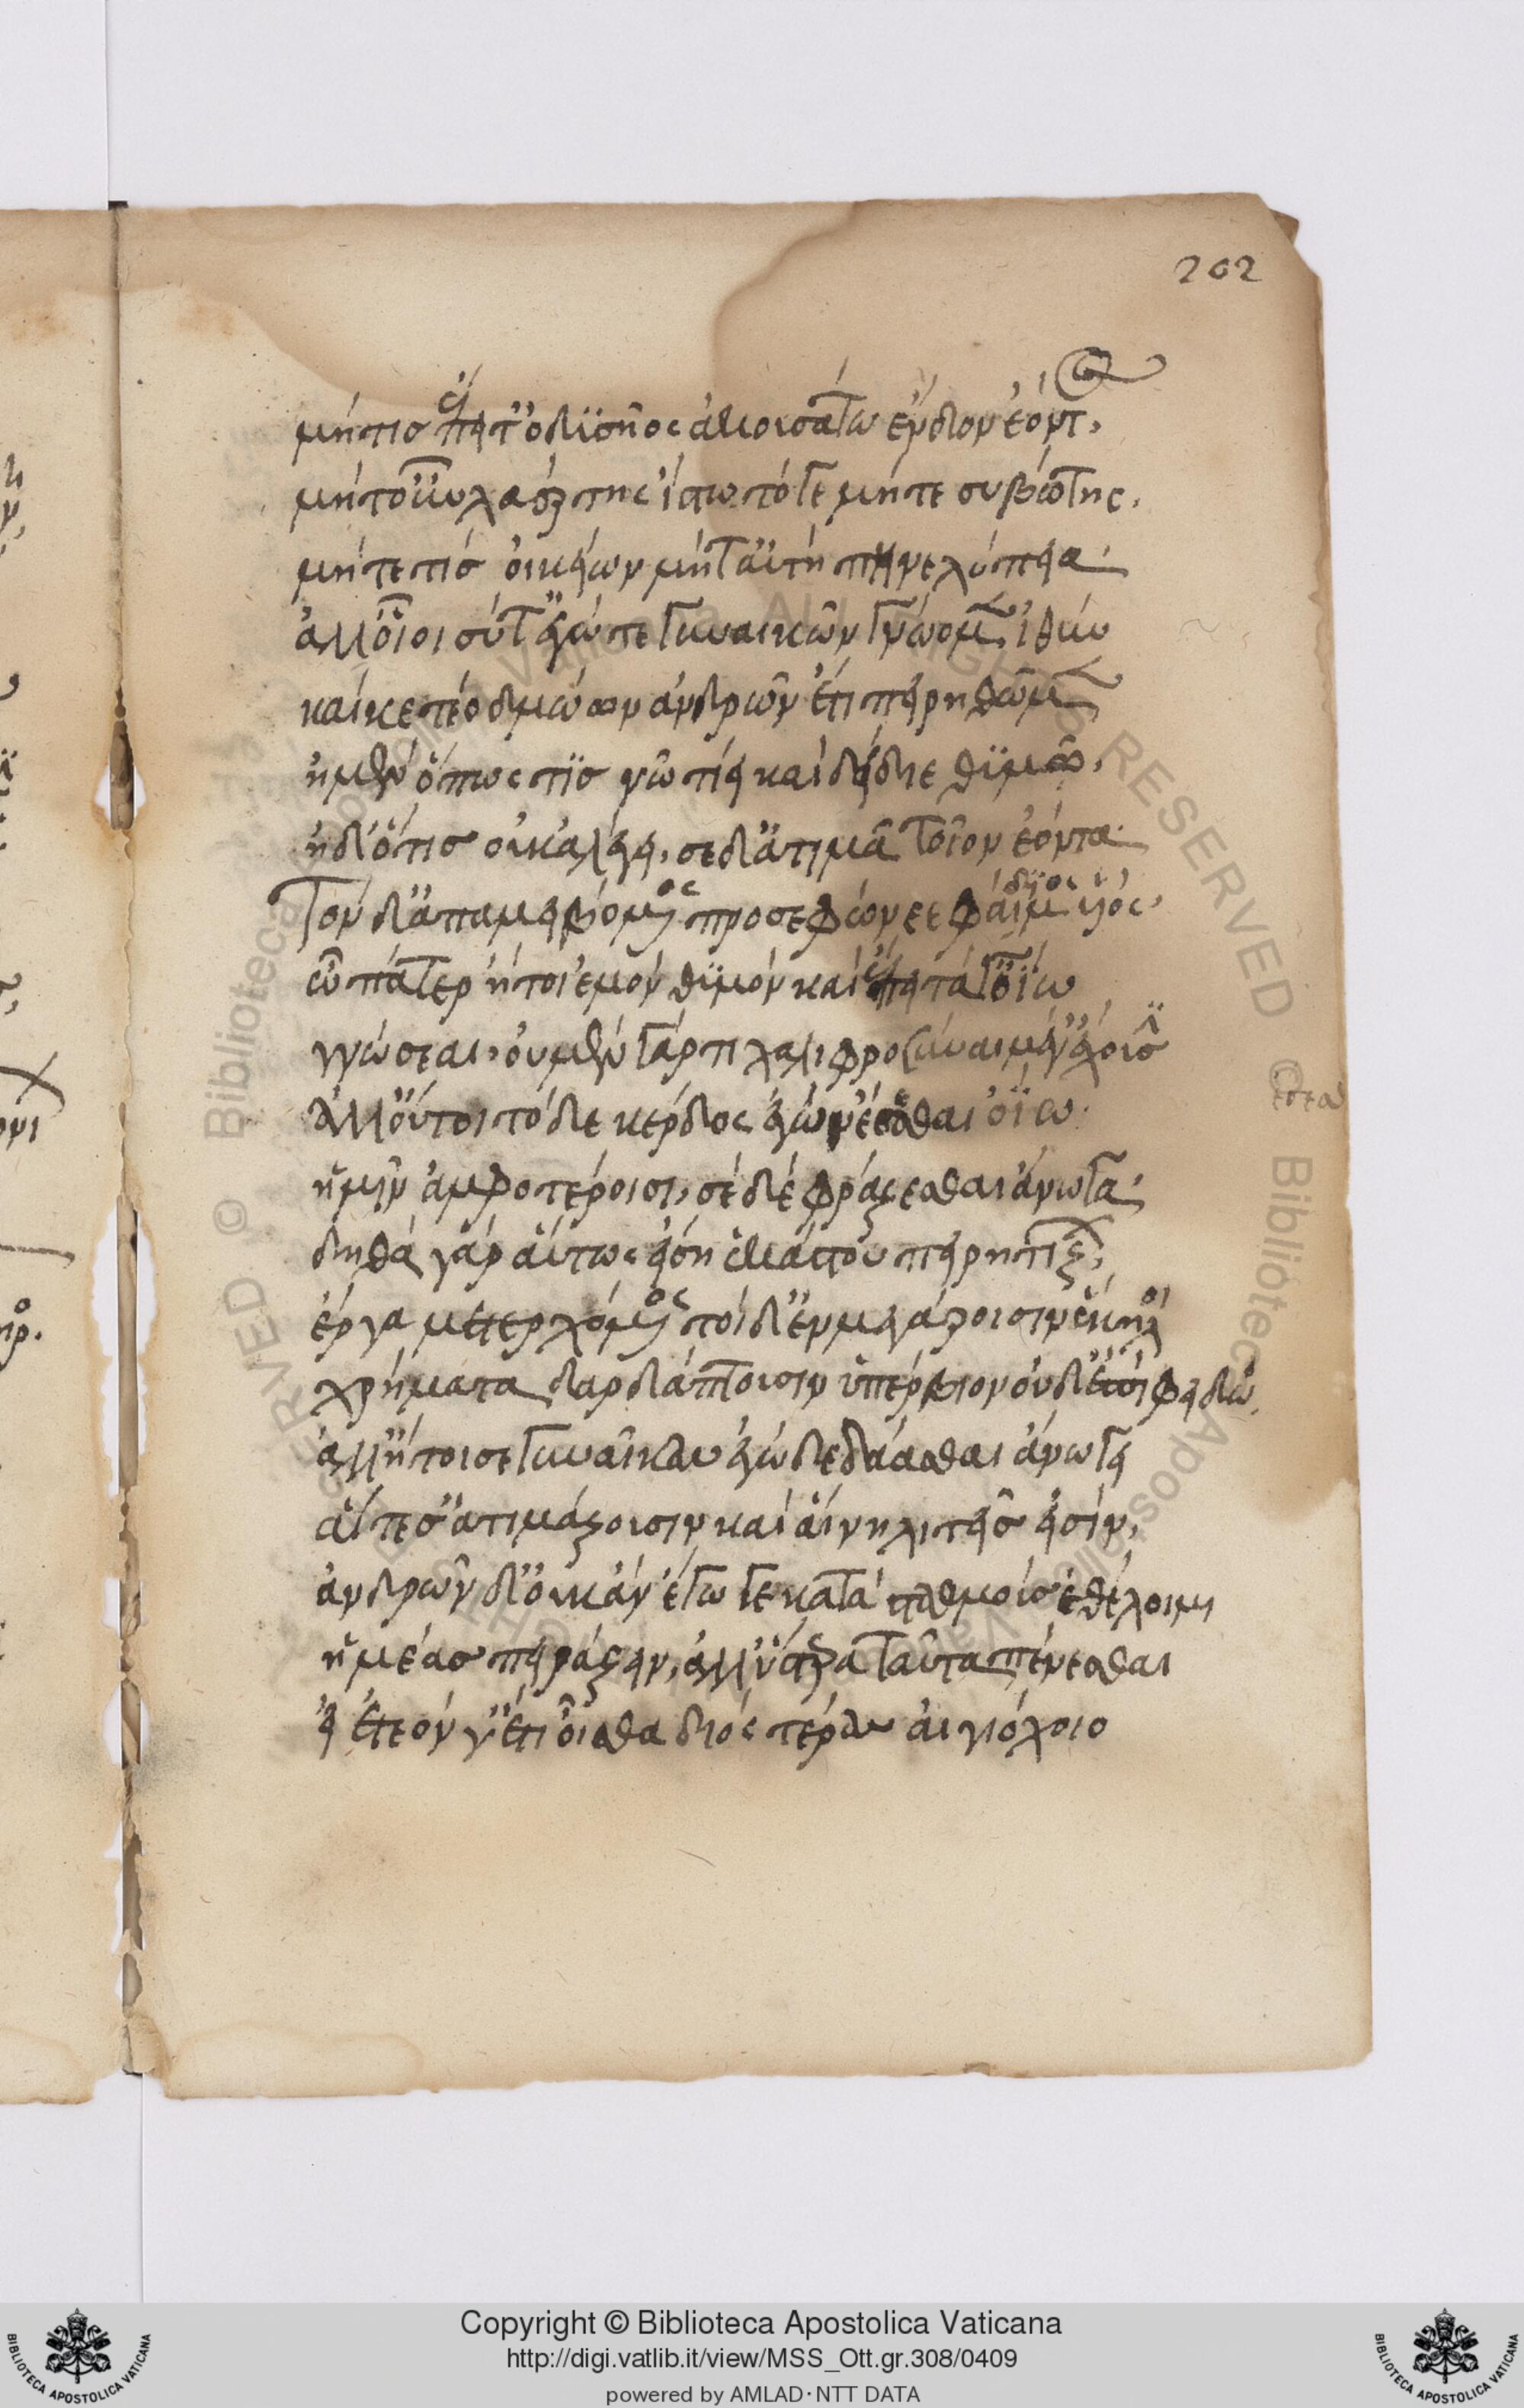 202
μήτις ἔπειτ' ὀδυσῆος ἀκουσάτω ἔνδον ἐόντ,
μήτ' οὖν λαέρτης ἴστω τόγε μήτε συβώτης,
μήτε τίς οἰκήων μήτ' αὐτὴ πηνελόπεια·
ἀλλ' οἶοι σύ τ' ἐγώ τε γυναικῶν γνώομ ἰθύν
καί κέ τεο δμώων ἀνδρῶν ἔτι πειρηθῶμ
ἠμὲν ὅπως τις νῶι τίει καὶ δείδιε θυμῶ,
ἠδ' ὅτις οὐκ ἀλέγει, σὲ δ' ἀτιμᾶ τοῖον ἐόντα·
Τὸν δ' ἀπαμειβόμενος προσεφώνεε φαίδιμος υἱός·
ὦ πάτερ ἤτοι ἐμὸν θυμὸν καὶ ἔπειτά γ' ὀίω
γνώσεαι· οὐ μὲν γάρ τι χαλιφροσύναι μ' ἔχουσ
ἀλλ' οὔτοι τόδε κέρδος ἐγὼν ἔσεσθαι ὀίω·
ἡμῖν ἀμφοτέροισι, σὲ δὲ φράζεσθαι ἄνωγα·
δηθὰ γὰρ αὔτως εἴση ἑκάστου πειρητίζ,
ἔργα μετερχόμενος τοὶ δ' ἐν μεγάροισιν ἕκηλοι
χρήματα δαρδάπτουσιν ὑπέρβιον οὐδ' ἔπι φειδώ.
ἀλλ' ἤτοί σε γυναῖκας ἐγὼ δεδάασθαι ἄνωγ
αἵ τέ σ' ἀτιμάζουσιν καὶ αἳ νηλιτεῖς εἰσίν,
ἀνδρῶν δ' οὐκ ἂν ἔγωγε κατὰ σταθμοὺς ἐθέλοιμι
ἡμέας πειράζειν, ἀλλ' ὕστερα ταῦτα πένεσθαι
εἰ ἐτεόν γ' ἔτι οἶσθα διὸς τέρας αἰγιόχοιο
Copyright © Biblioteca Apostolica Vaticana
http://digi.vatlib.it/view/MSS_Ott.gr.308/0409
powered by AMLAD·NTT DATA